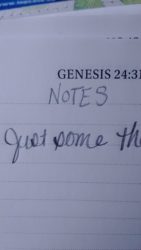 GENESIS 24:31
NOTES
Just some